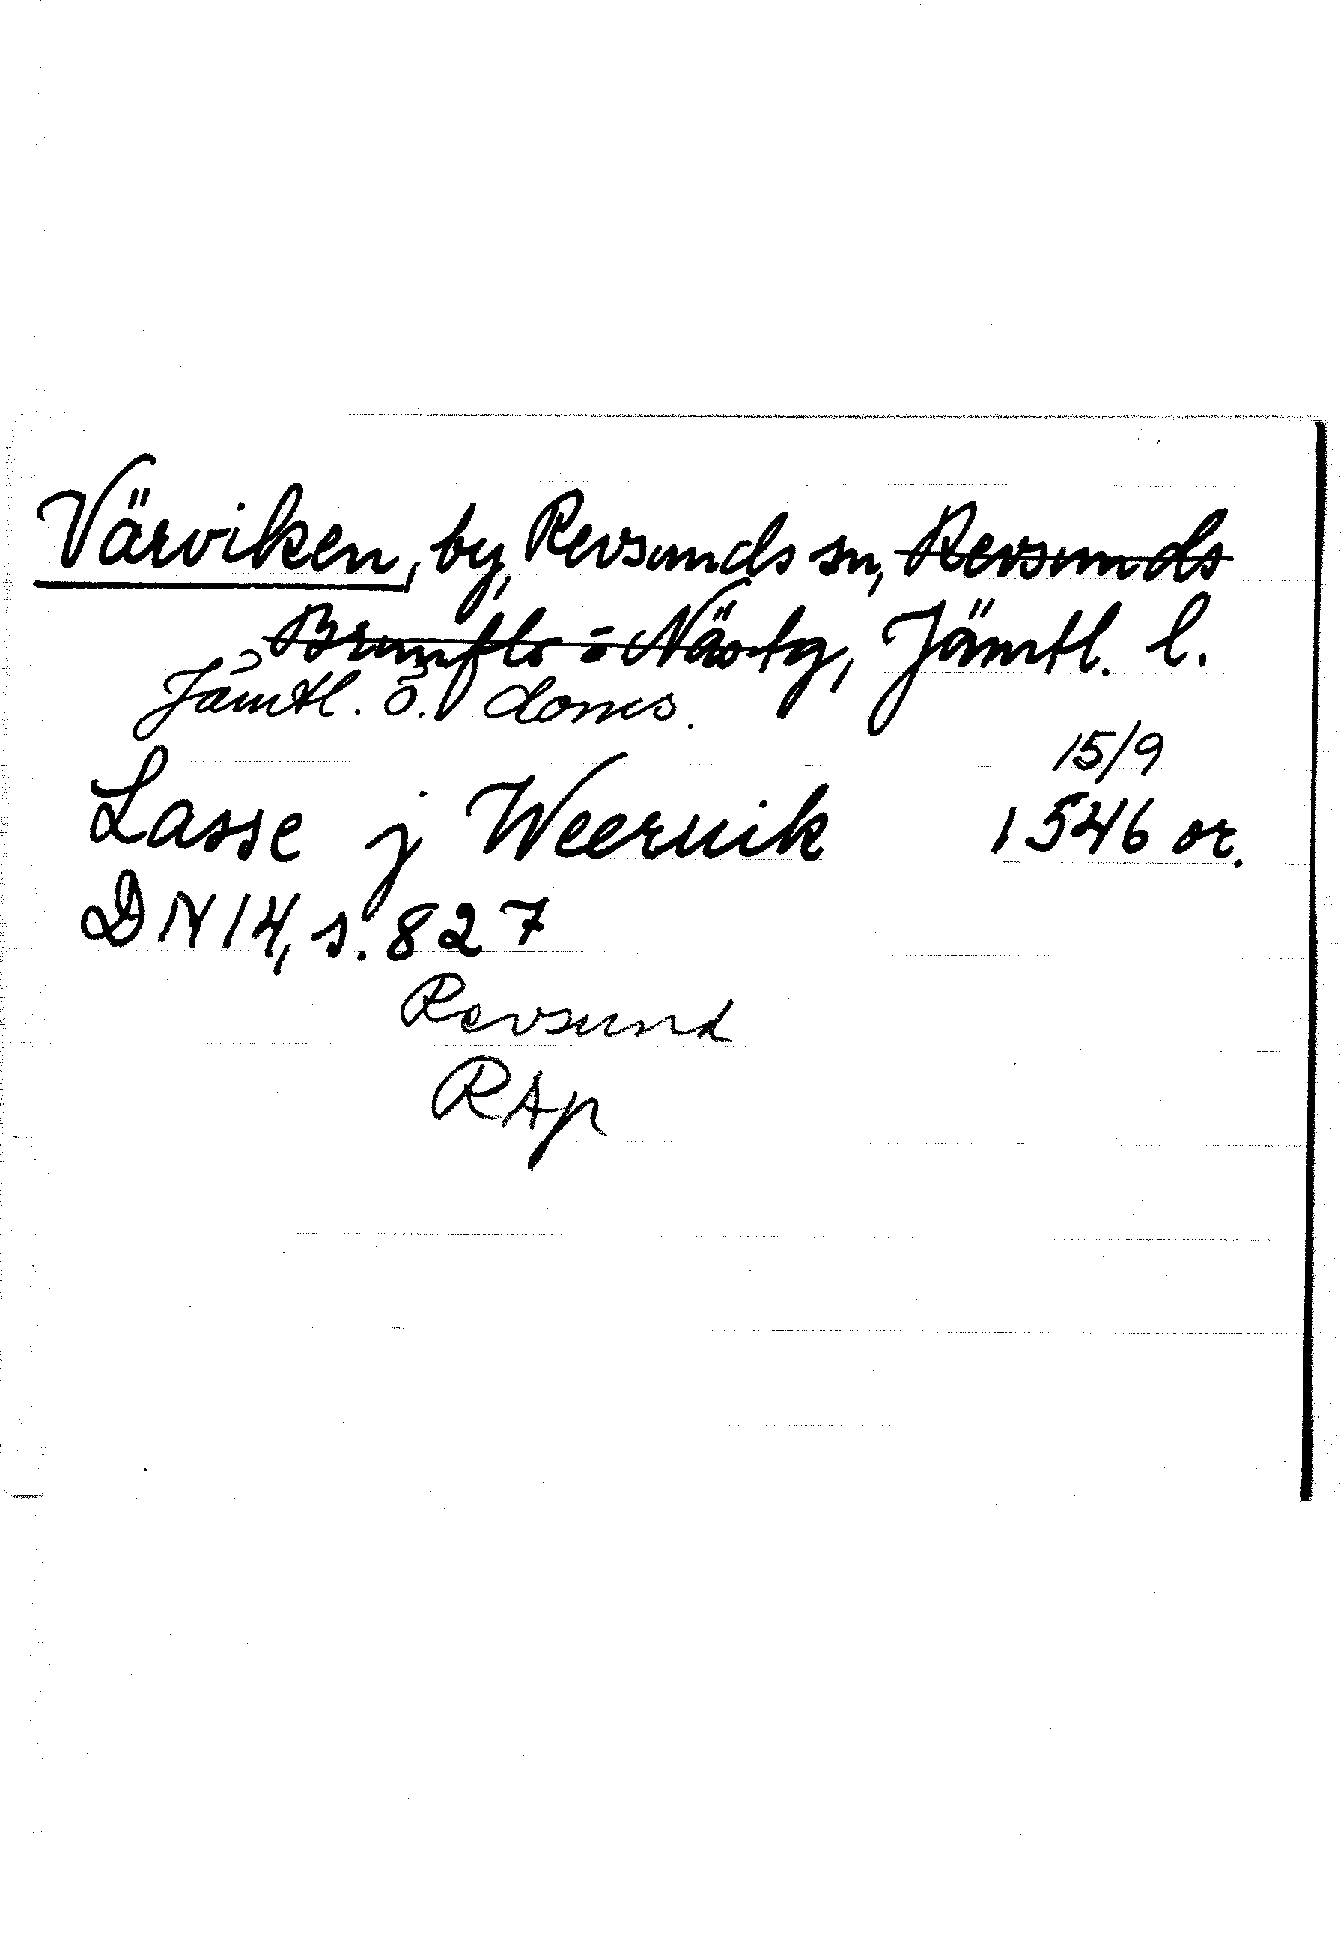 Värviken, by, Revsunds sn, Revsunds
Brunflo o Näs tg, Jämtl. l.
Jämtl. ö. doms.
15/9
Lasse j Weeruik 1546 or.
DN 14, s. 827
Revsund
RAp